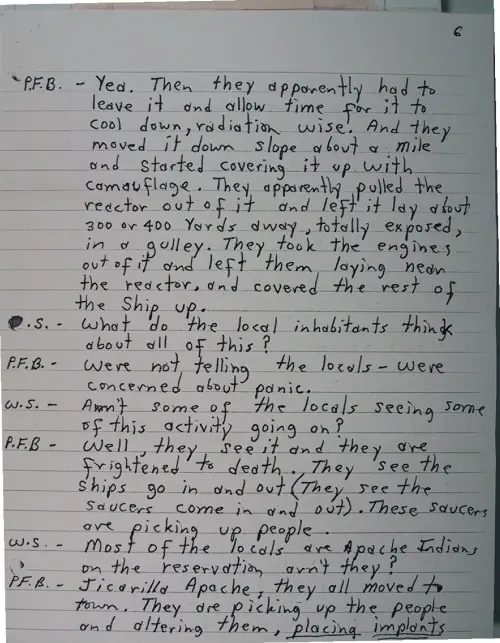 6
P.F.B. - Yea. Then they apparently had to
leave it and allow time for it to
cool down, radiation wise. And they
moved it down slope about a mile
and started covering it up with
camouflage. They apparently pulled the
reactor out of it and left it lay about
300 or 400 Yards away, totally exposed,
in a gulley. They took the engines
out of it and left them laying near
the reactor, and covered the rest of
the Ship up.
.S. - What do the local inhabitants think
about all of this?
P.F.B. - Were not telling the locals - were
concerned about panic.
W.S. - Arn't some of the locals seeing some
of this activity going on?
P.F.B - Well, they see it and they are
frightened to death. They see the
ships go in and out (They see the
saucers come in and out). These saucers
are picking up people.
W.S. - Most of the locals are Apache Indians
on the reservation arn't they?
P.F.B. - Jicarilla Apache, they all moved to
town. They are picking up the people
and altering them, placing implants